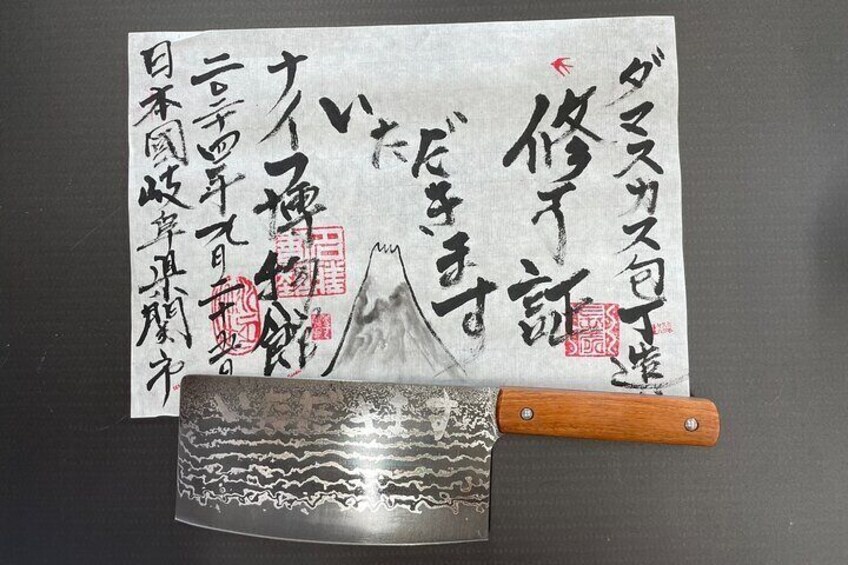 ダマスカス包丁造
修了証
いただきます
ナイフ博物館
二〇二四年九月二十日
日本國岐阜県関市
いただきます